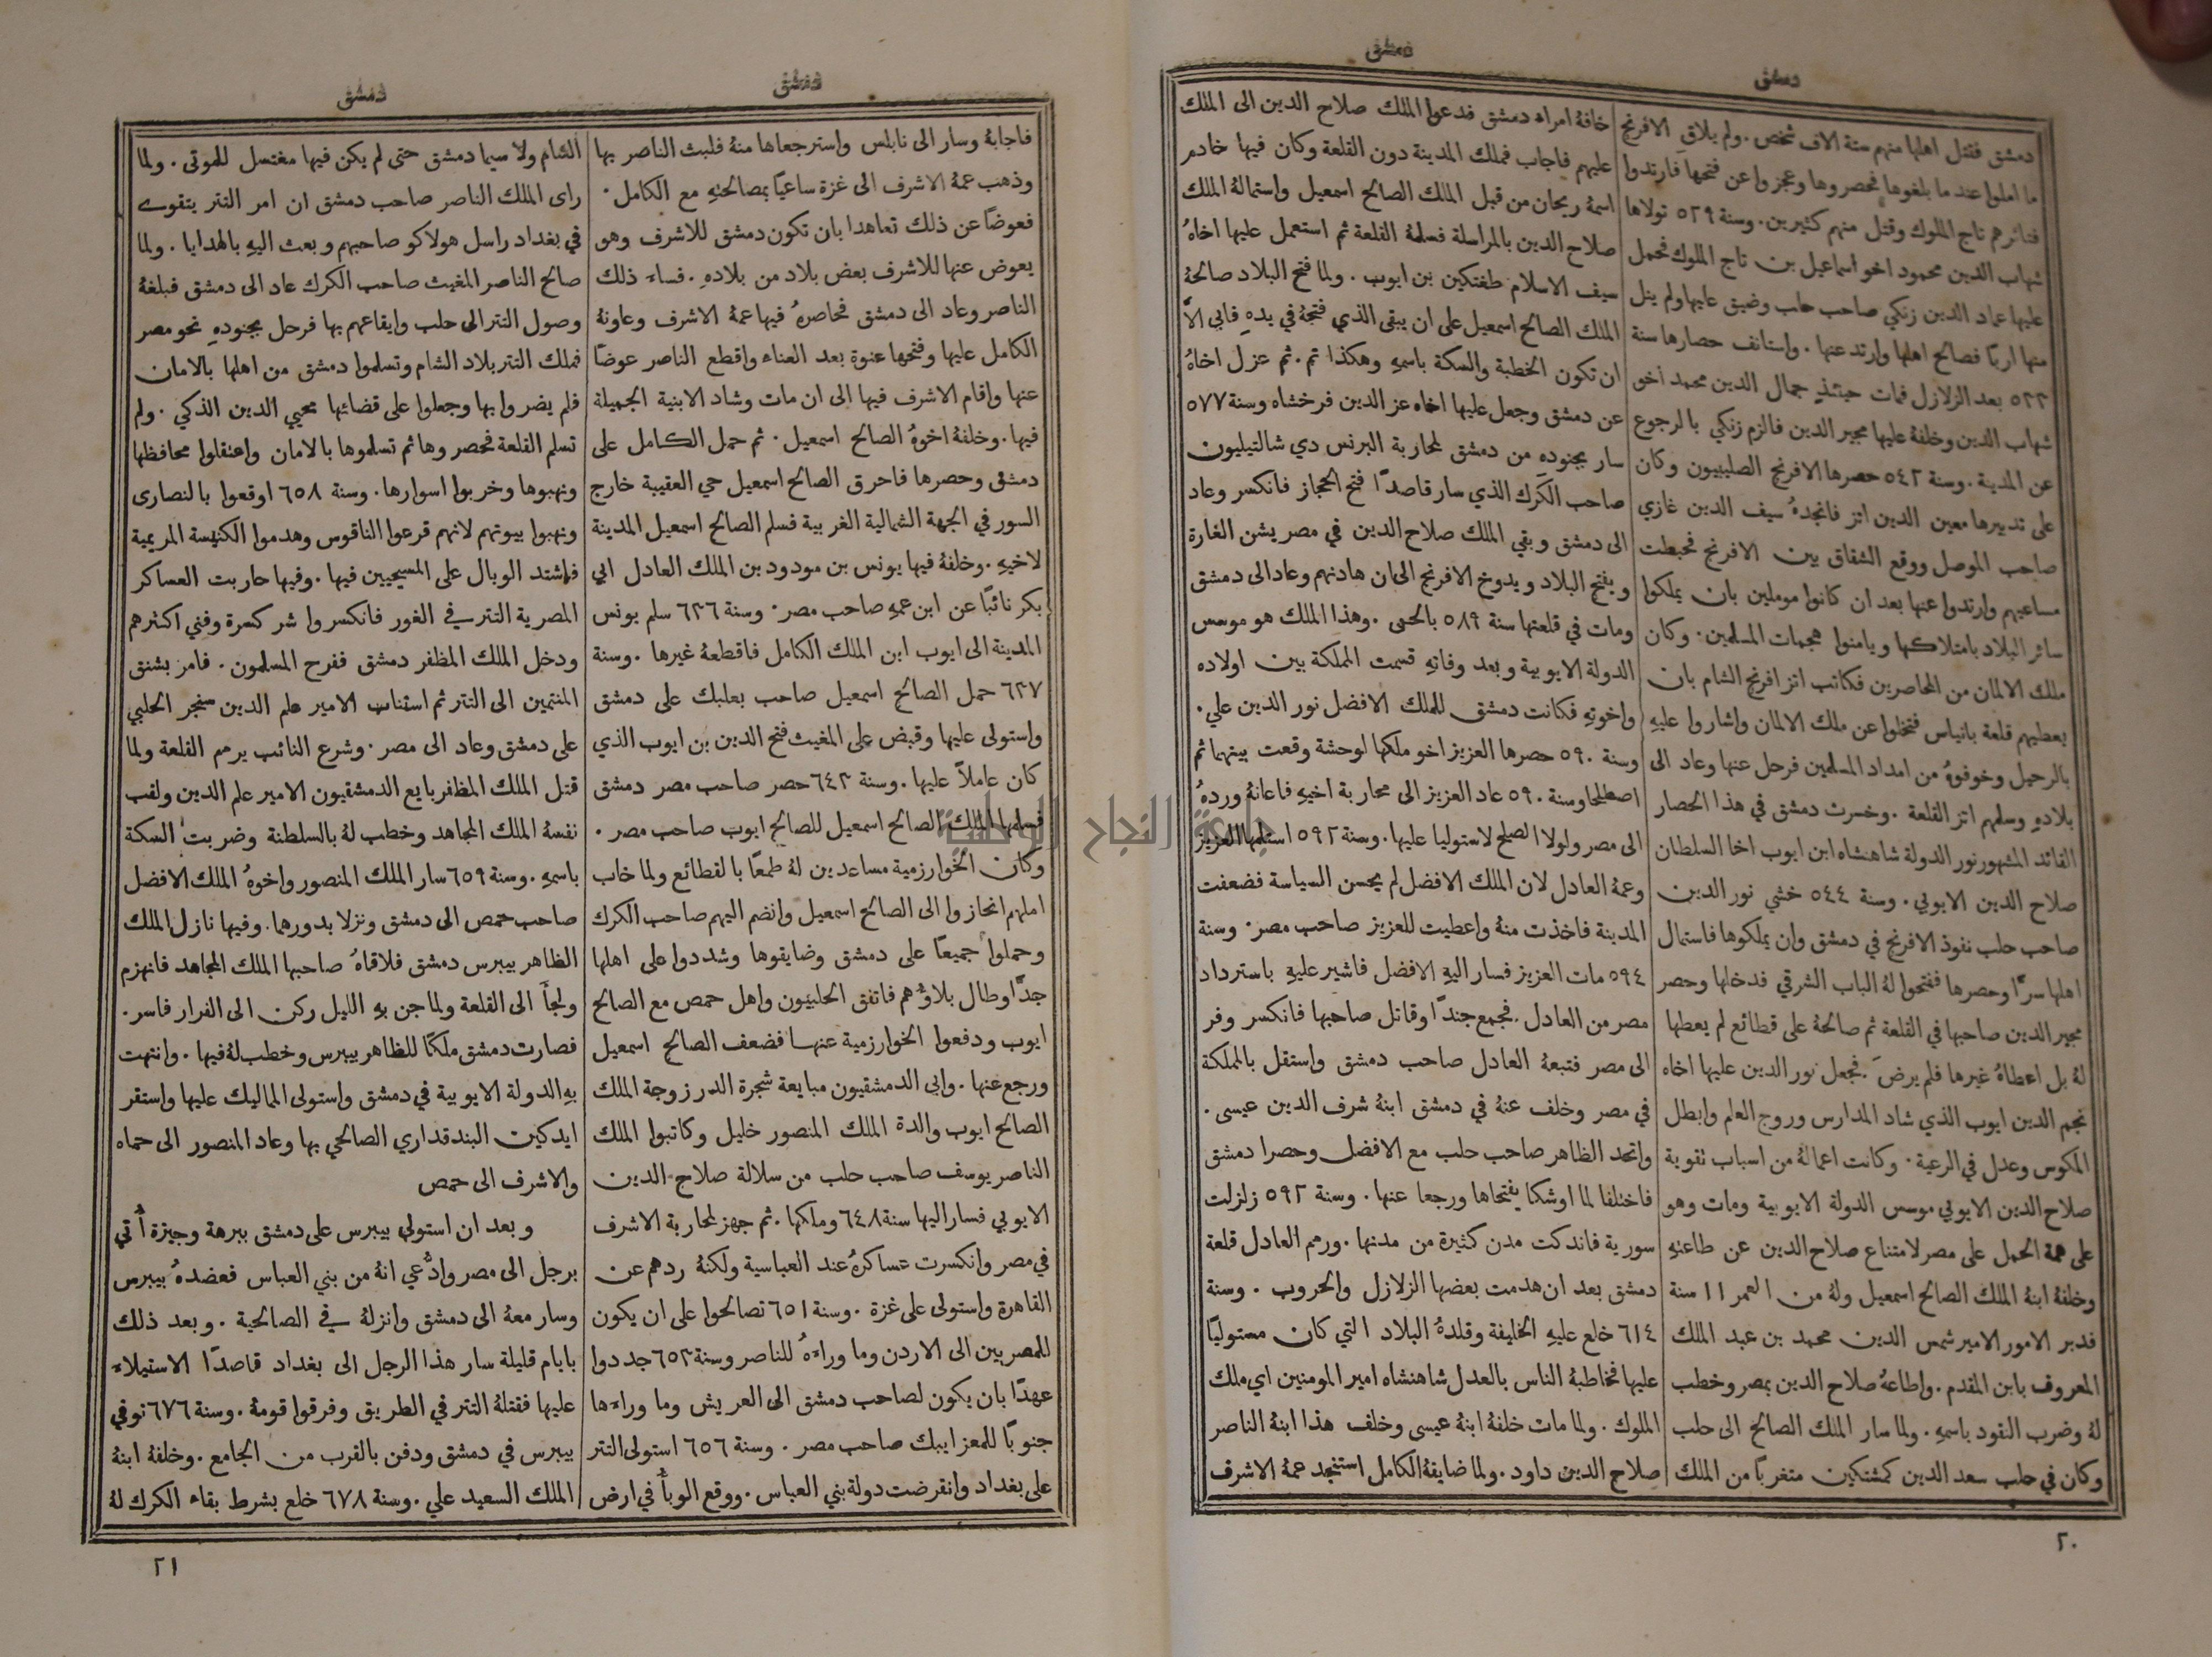 دمشق
دمشق
دمشق فقتل اهلها منهم ستة الاف شخص. ولم يلاقِ الافرنج
ما املوا عند ما بلغوها فحصروها وعجزوا عن فتحها فارتدوا
فتاثرهم تاج الملوك وقتل منهم كثيرين. وسنة ٥٢٩ تولاها
شهاب الدين محمود اخو اسماعيل بن تاج الملوك فحمل
عليها عماد الدين زنكي صاحب حلب وضيق عليها ولم ينل
منها اربًا فصالح اهلها وارتد عنها. واستانف حصارها سنة
٥٣٣ بعد الزلازل فمات حينئذٍ جمال الدين محمد اخو
شهاب الدين وخلفهُ عليها مجير الدين فالزم زنكي بالرجوع
عن المدينة. وسنة ٥٤٣ حصرها الافرنج الصليبيون وكان
على تدبيرها معين الدين انز فانجدهُ سيف الدين غازي
صاحب الموصل ووقع الشقاق بين الافرنج فحبطت
مساعيهم وارتدوا عنها بعد ان كانوا موملين بان يملكوا
سائر البلاد بامتلاكها ويامنوا هجمات المسلمين. وكان
ملك الالمان من المحاصرين فكاتب انز افرنج الشام بان
يعطيهم قلعة بانياس فتخلوا عن ملك الالمان واشاروا عليهِ
بالرحيل وخوفوهُ من امداد المسلمين فرحل عنها وعاد الى
بلادهِ وسلمهم انز القلعة. وخسرت دمشق في هذا الحصار
القائد المشهور نور الدولة شاهنشاه ابن ايوب اخا السلطان
صلاح الدين الايوبي. وسنة ٥٤٤ خشي نور الدين
صاحب حلب نفوذ الافرنج في دمشق وان يملكوها فاستمال
اهلها سرًّا وحصرها ففتحوا لهُ الباب الشرقي فدخلها وحصر
مجير الدين صاحبها في القلعة ثم صالحهُ على قطائع لم يعطها
لهُ بل اعطاهُ غيرها فلم يرضَ. فجعل نور الدين عليها اخاه
نجم الدين ايوب الذي شاد المدارس وروج العلم وابطل
المكوس وعدل في الرعية. وكانت اعمالهُ من اسباب تقوية
صلاح الدين الايوبي موسس الدولة الايوبية ومات وهو
على همة الحمل على مصر لامتناع صلاح الدين عن طاعتهِ
وخلفهُ ابنهُ الملك الصالح اسمعيل ولهُ من العمر ١١ سنة
فدبر الامور الامير شمس الدين محمد بن عبد الملك
المعروف بابن المقدم. واطاعهُ صلاح الدين بمصر وخطب
لهُ وضرب النقود باسمهِ. ولما سار الملك الصالح الى حلب
وكان في حلب سعد الدين كمشتكين متغربًا من الملك
خافهُ امراء دمشق فدعوا الملك صلاح الدين الى الملك
عليهم فاجاب فملك المدينة دون القلعة وكان فيها خادم
اسمهُ ريحان من قبل المالك الصالح اسمعيل واستمالهُ الملك
صلاح الدين بالمراسلة فسلمهُ القلعة ثم استعمل عليها اخاهُ
سيف الاسلام طغتكين بن ايوب. ولما فتح البلاد صالحهُ
الملك الصالح اسمعيل على ان يبقى الذي فتحهُ في يدهِ فابى الَّا
ان تكون الخطبة والسكة باسمهِ وهكذا تم. ثم عزل اخاهُ
عن دمشق وجعل عليها اخاه عز الدين فرخشاه وسنة ٥٧٧
سار بجنودهِ من دمشق لمحاربة البرنس دي شالتيليون
صاحب الكَرك الذي سار قاصدًا فتح الحجاز فانكسر وعاد
الى دمشق وبقي الملك صلاح الدين في مصر يشن الغارة
ويفتح البلاد ويدوخ الافرنج الى ان هادنهم وعاد الى دمشق
ومات في قلعتها سنة ٥٨٩ بالحمى. وهذا الملك هو موسس
الدولة الايوبية وبعد وفاتهِ قسمت المملكة بين اولاده
واخوتهِ فكانت دمشق للملك الافضل نور الدين علي.
وسنة ٥٩٠ حصرها العزيز اخو ملكها لوحشة وقعت بينهما ثم
اصطلحا وسنة ٥٩٠ عاد العزيز الى محاربة اخيهِ فاعانهُ وردهُ
الى مصر ولولا الصلح لاستوليا عليها. وسنة ٥٩٢ استلمها العزيز
وعمهُ العادل لان الملك الافضل لم يحسن السياسة فضعفت
المدينة فاخذت منهُ واعطيت للعزيز صاحب مصر. وسنة
٥٩٤ مات العزيز فسار اليهِ الافضل فاشير عليهِ باسترداد
مصر من العادل. فجمع جندًا وقاتل صاحبها فانكسر وفر
الى مصر فتبعهُ العادل صاحب دمشق واستقل بالمملكة
في مصر وخلف عنهُ في دمشق ابنهُ شرف الدين عيسى.
واتحد الظاهر صاحب حلب مع الافضل وحصرا دمشق
فاختلفا لما اوشكا يفتحاها ورجعا عنها. وسنة ٥٩٢ زلزلت
سورية فاندكت مدن كثيرة من مدنها. ورمم العادل قلعة
دمشق بعد ان هدمت بعضها الزلازل والحروب. وسنة
٦١٤ خلع عليهِ الخليفة وقلدهُ البلاد التي كان مستوليًا
عليها فخاطبهُ الناس بالعدل شاهنشاه امير المومنين اي ملك
الملوك. ولما مات خلفهُ ابنهُ عيسى وخلف هذا ابنهُ الناصر
صلاح الدين داود. ولما ضايقهُ الكامل استنجد عمهُ الاشرف
٢٠
دمشق
دمشق
فاجابهُ وسار الى نابلس واسترجعاها منهُ فلبث الناصر بها
وذهب عمهُ الاشرف الى غزة ساعيًا بمصالحتهِ مع الكامل.
فعوضًا عن ذلك تعاهدا بان تكون دمشق للاشرف وهو
يعوض عنها للاشرف بعض بلاد من بلادهِ. فساء ذلك
الناصر وعاد الى دمشق فحاصرهُ فيها عمهُ الاشرف وعاونهُ
الكامل عليها وفتحها عنوة بعد العناء واقطع الناصر عوضًا
عنها واقام الاشرف فيها الى ان مات وشاد الابنية الجميلة
فيها. وخلفهُ اخوهُ الصالح اسمعيل. ثم حمل الكامل على
دمشق وحصرها فاحرق الصالح اسمعيل حي العقيبة خارج
السور في الجهة الشمالية الغربية فسلم الصالح اسمعيل المدينة
لاخيهِ. وخلفهُ فيها يونس بن مودود بن الملك العادل ابي
بكر نائبًا عن ابن عمهِ صاحب مصر. وسنة ٦٣٦ سلم يونس
المدينة الى ايوب ابن الملك الكامل فاقطعهُ غيرها. وسنة
٦٣٧ حمل الصالح اسمعيل صاحب بعلبك على دمشق
واستولى عليها وقبض على المغيث فتح الدين بن ايوب الذي
كان عاملًا عليها. وسنة ٦٤٣ حصر صاحب مصر دمشق
فسلمها الملك الصالح اسمعيل للصالح ايوب صاحب مصر.
وكان الخوارزمية مساعدين لهُ طمعًا بالقطائع ولما خاب
املهم انحازوا الى الصالح اسمعيل وانضم اليهم صاحب الكرك
وحملوا جميعًا على دمشق وضايقوها وشددوا على اهلها
جدًّا وطال بلاؤُهم فاتفق الحلبيون واهل حمص مع الصالح
ايوب ودفعوا الخوارزمية عنها فضعف الصالح اسمعيل
ورجع عنها. وابى الدمشقيون مبايعة شجرة الدر زوجة الملك
الصالح ايوب والدة الملك المنصور خليل وكاتبوا الملك
الناصر يوسف صاحب حلب من سلالة صلاح الدين
الايوبي فسار اليها سنة ٦٤٨ وملكها. ثم جهز لمحاربة الاشرف
في مصر وانكسرت عساكرهُ عند العباسية ولكنهُ ردهم عن
القاهرة واستولى على غزة. وسنة ٦٥١ تصالحوا على ان يكون
للمصريين الى الاردن وما وراءهُ للناصر وسنة ٦٥٣ جددوا
عهدًا بان يكون لصاحب دمشق الى العريش وما وراءها
جنوبًا للمعز ايبك صاحب مصر. وسنة ٦٥٦ استولى التتر
على بغداد وانقرضت دولة بني العباس. ووقع الوبأ في ارض
الشام ولا سيما دمشق حتى لم يكن فيها مغتسل للموتى. ولما
راى الملك الناصر صاحب دمشق ان امر التتر يتقوى
في بغداد راسل هولاكو صاحبهم وبعث اليهِ بالهدايا. ولما
صالح الناصر المغيث صاحب الكرك عاد الى دمشق فبلغهُ
وصول التتر الى حلب وايقاعهم بها فرحل بجنودهِ نحو مصر
فملك التتر بلاد الشام وتسلموا دمشق من اهلها بالامان
فلم يضروا بها وجعلوا على قضائها محيي الدين الذكي. ولم
تسلم القلعة فحصروها ثم تسلموها بالامان واعتقلوا محافظها
ونهبوها وخربوا اسوارها. وسنة ٦٥٨ اوقعوا بالنصارى
ونهبوا بيوتهم لانهم قرعوا الناقوس وهدموا الكنيسة المريمية
فاشتد الوبال على المسيحيين فيها. وفيها حاربت العساكر
المصرية التتر في الغور فانكسروا شر كسرة وفني اكثرهم
ودخل الملك المظفر دمشق ففرح المسلمون. فامر بشنق
المنتمين الى التتر ثم استناب الامير علم الدين سنجر الحلبي
على دمشق وعاد الى مصر. وشرع النائب يرمم القلعة ولما
قتل الملك المظفر بايع الدمشقيون الامير علم الدين ولقب
نفسهُ الملك المجاهد وخطب لهُ بالسلطنة وضربت السكة
باسمهِ. وسنة ٦٥٩ سار الملك المنصور واخوهُ الملك الافضل
صاحب حمص الى دمشق ونزلا بدورهما. وفيها نازل الملك
الظاهر بيبرس دمشق فلاقاهُ صاحبها الملك المجاهد فانهزم
ولجأَ الى القلعة ولما جن بهِ الليل ركن الى الفرار فاسر.
فصارت دمشق ملكًا للظاهر بيبرس وخطب لهُ فيها. وانتهت
بهِ الدولة الايوبية في دمشق واستولى المماليك عليها واستقر
ايدكين البندقداري الصالحي بها وعاد المنصور الى حماه
والاشرف الى حمص
وبعد ان استولى بيبرس على دمشق ببرهة وجيزة أُتي
برجل الى مصر وادُّعي انهُ من بني العباس فعضدهُ بيبرس
وسار معهُ الى دمشق وانزلهُ في الصالحية. وبعد ذلك
بايام قليلة سار هذا الرجل الى بغداد قاصدًا الاستيلاء
عليها فقتلهُ التتر في الطريق وفرقوا قومهُ. وسنة ٦٧٦ توفي
بيبرس في دمشق ودفن بالقرب من الجامع. وخلفهُ ابنهُ
الملك السعيد علي. وسنة ٦٧٨ خلع بشرط بقاء الكرك لهُ
٢١
جامعة النجاح الوطنية